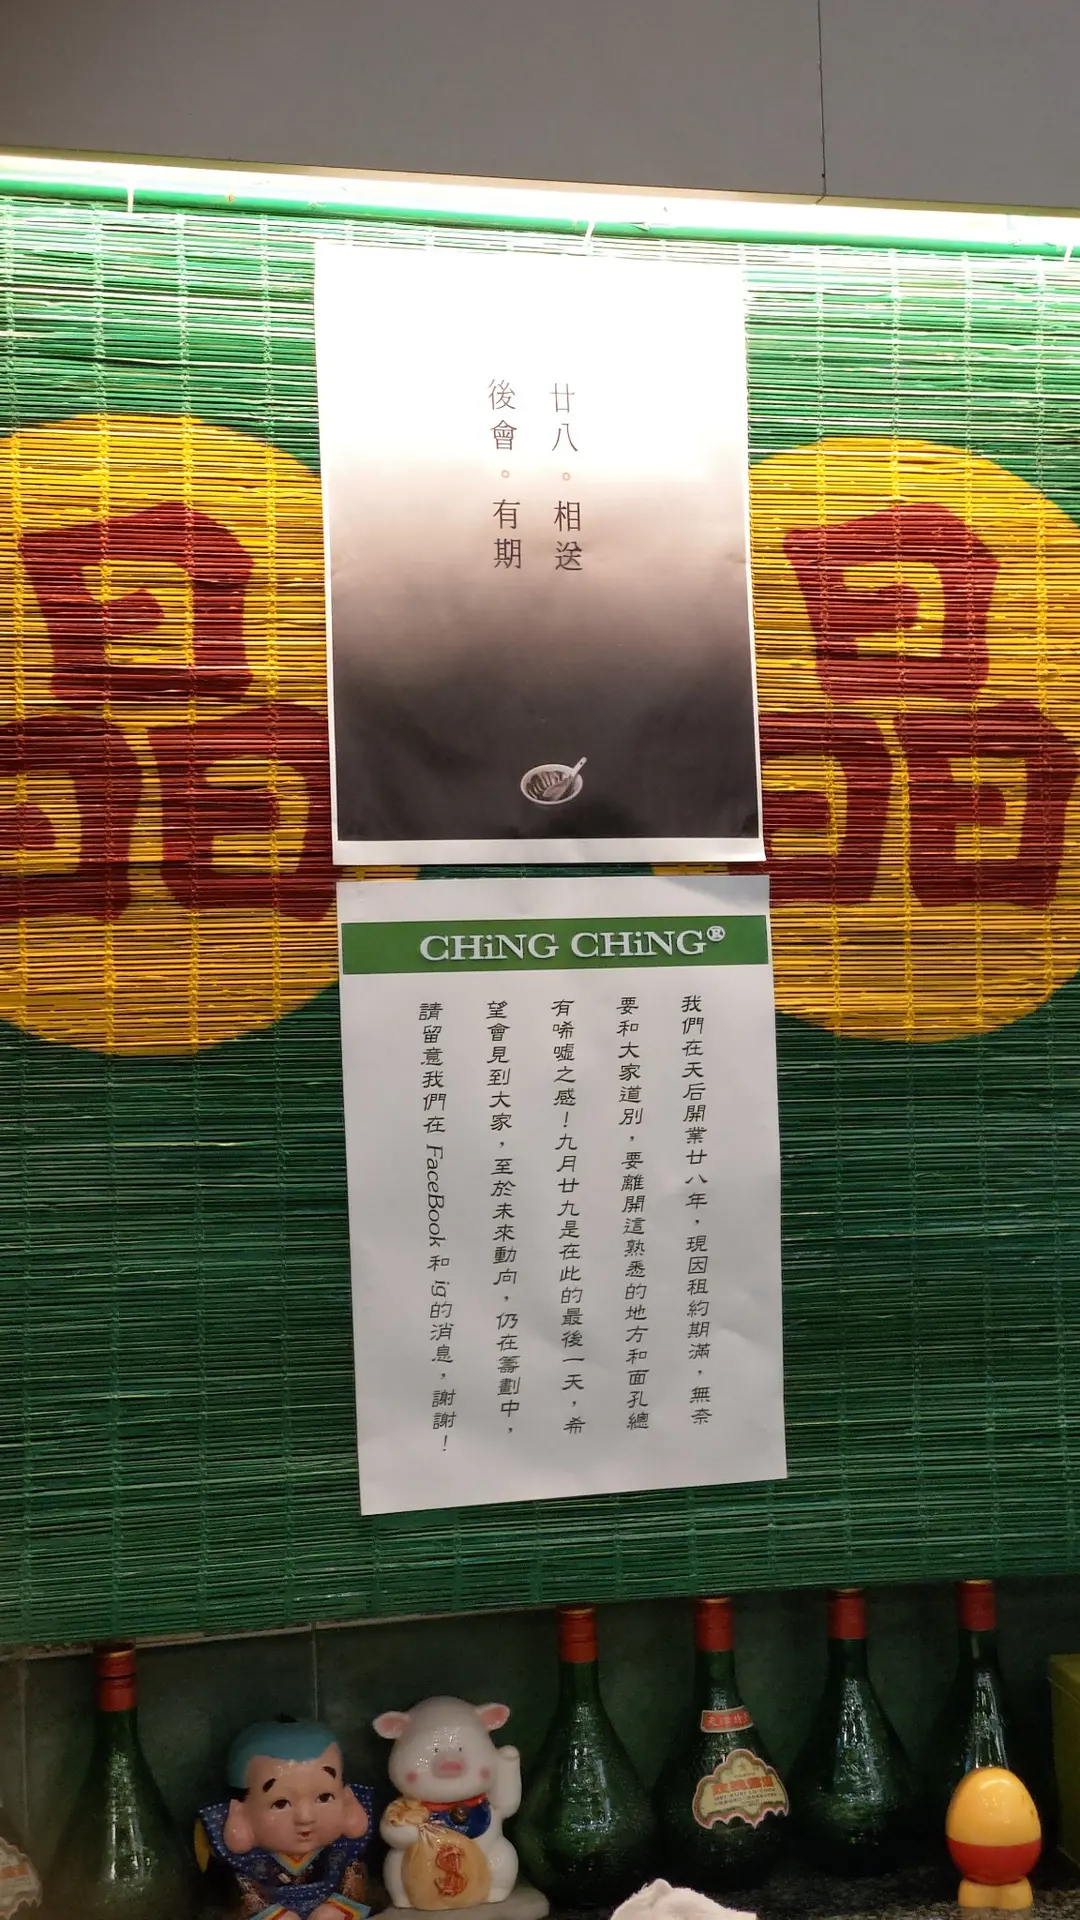 廿八。相送
後會。有期
晶
晶
CHiNG CHiNG®
我們在天后開業廿八年，現因租約期滿，無奈
要和大家道別，要離開這熟悉的地方和面孔總
有唏噓之感！九月廿九是在此的最後一天，希
望會見到大家，至於未來動向，仍在籌劃中，
請留意我們在 FaceBook 和 ig 的消息，謝謝！
$